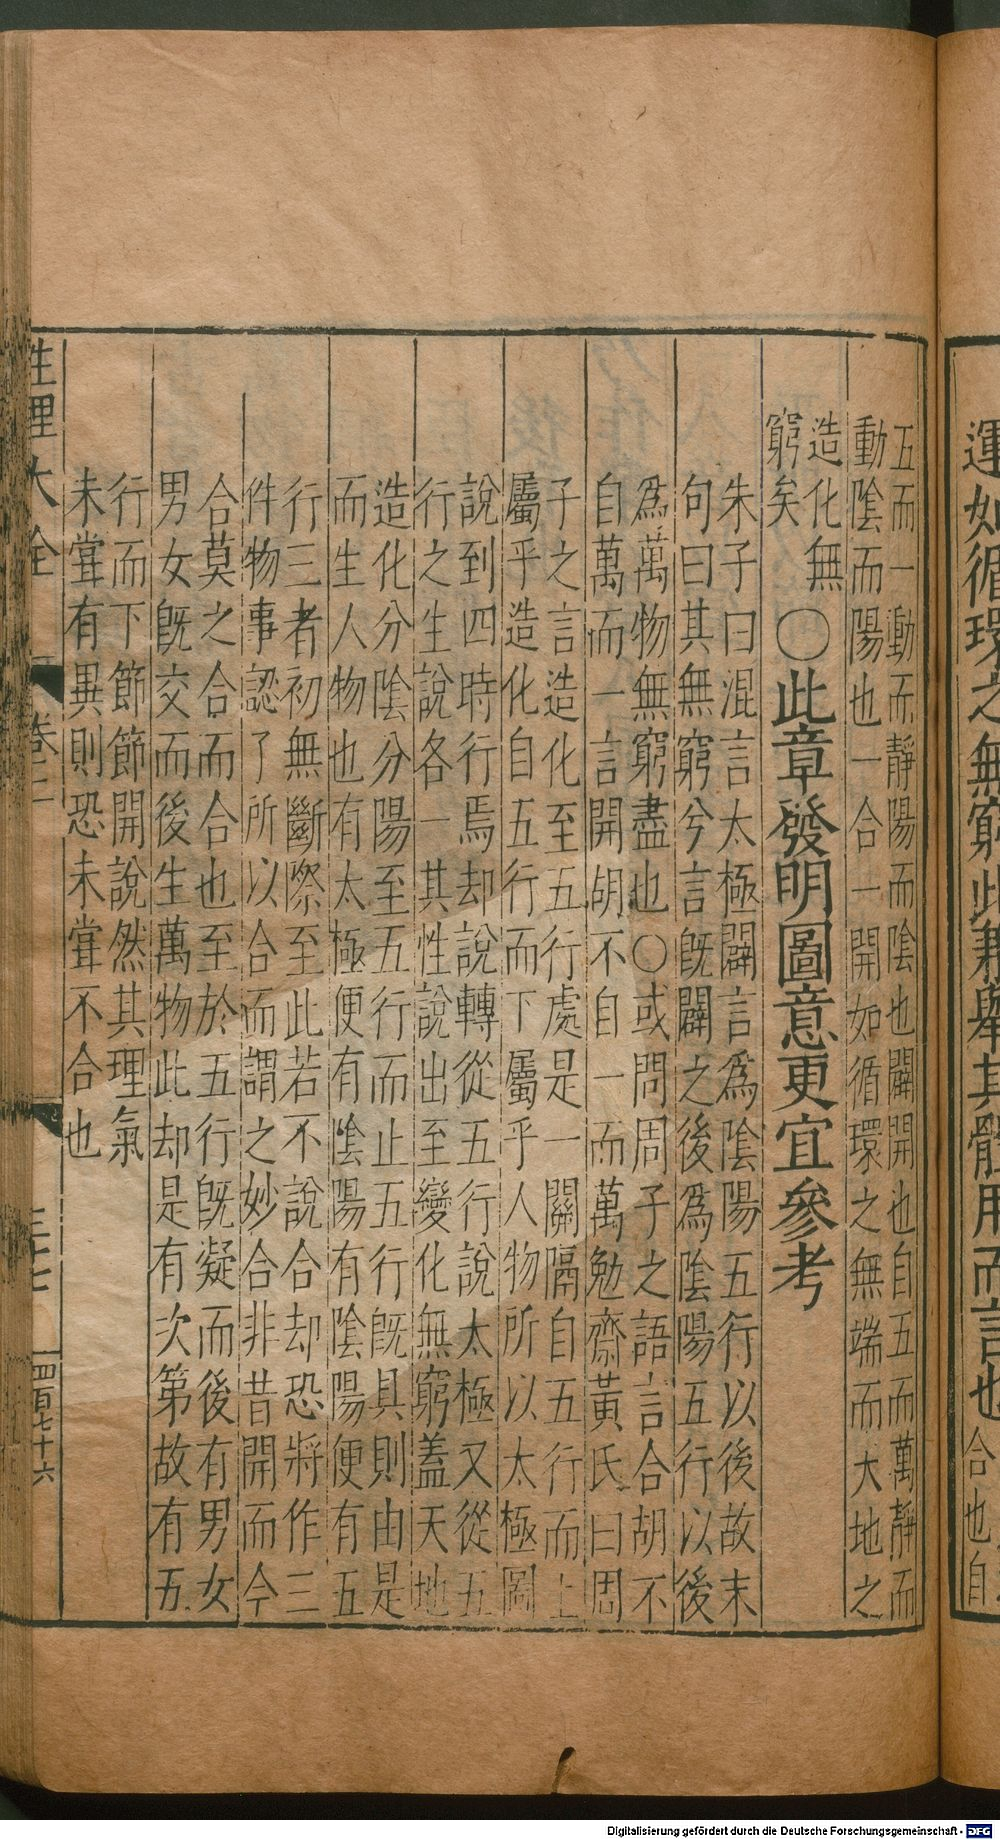 運如循環之無窮此兼舉其體用而言也
合也自
五而一動而靜陽而陰也闢開也自五而萬靜而
動陰而陽也一合一開如循環之無端而大地之
造化無
窮矣
〇此章發明圖意更宜參考
朱子曰混言太極闢言爲陰陽五行以後故末
句曰其無窮兮言旣闢之後爲陰陽五行以後
爲萬物無窮盡也〇或問周子之語言合胡不
自萬而一言開胡不自一而萬勉齋黃氏曰周
子之言造化至五行處是一關隔自五行而上
屬乎造化自五行而下屬乎人物所以太極圖
說到四時行焉却說轉從五行說太極又從五
行之生說各一其性說出至變化無窮蓋天地
造化分陰分陽至五行而止五行旣具則由是
而生人物也有太極便有陰陽有陰陽便有五
行三者初無斷際至此若不說合却恐將作三
件物事認了所以合而謂之妙合非昔開而今
合莫之合而合也至於五行旣凝而後有男女
男女旣交而後生萬物此却是有次第故有五
行而下節節開說然其理氣
未嘗有異則恐未嘗不合也
性理大全 卷二 三十七 四百七十六
Digitalisierung gefördert durch die Deutsche Forschungsgemeinschaft - DFG